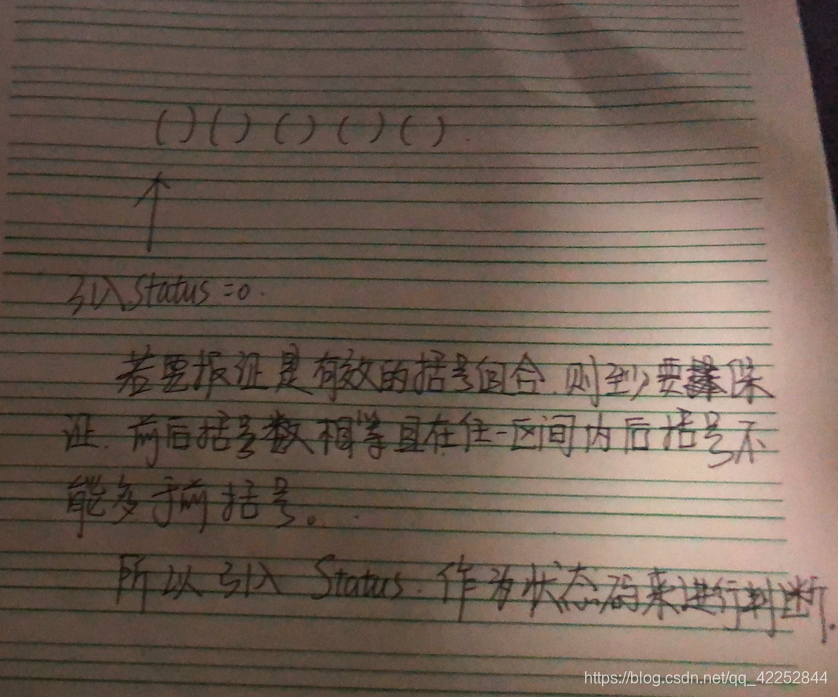 ()()()()().
引入Status=0.
若要报证是有效的括号组合.则至少要保
证.前后括号数相等且在任一区间内后括号不
能多于前括号。
所以引入 Status.作为状态码来进行判断.
https://blog.csdn.net/qq_42252844